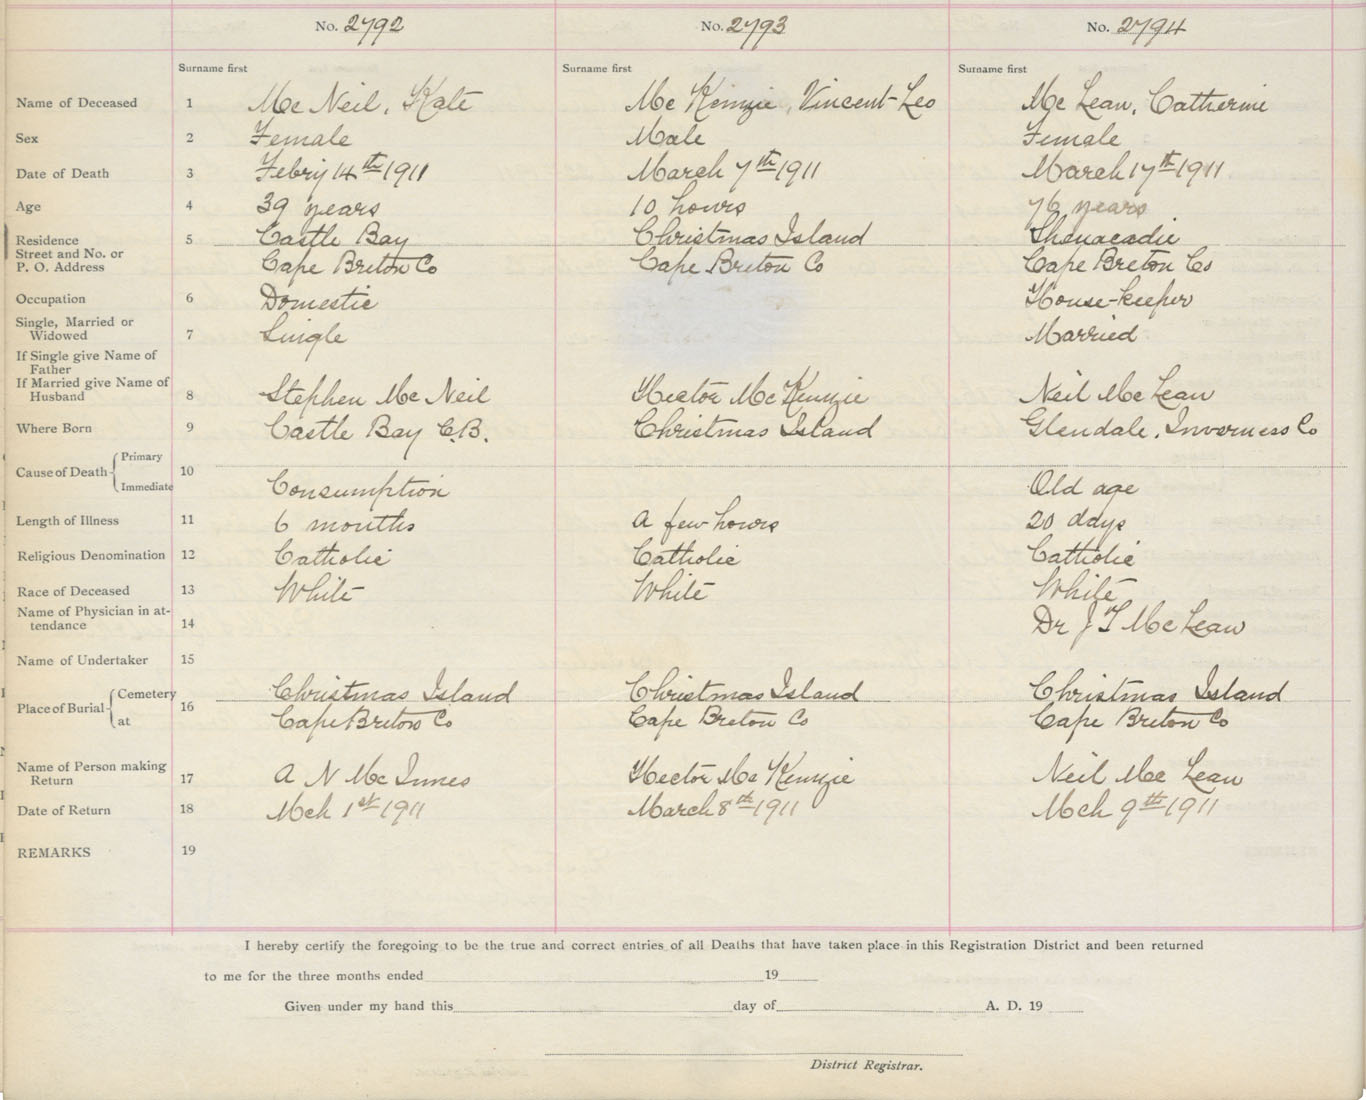 No. 2792 No. 2793 No. 2794
Surname first Surname first Surname first
Name of Deceased 1 Mc Neil, Kate Mc Kenzie, Vincent-Leo Mc Lean, Catherine
Sex 2 Female Male Female
Date of Death 3 Febry 14th 1911 March 7th 1911 March 17th 1911
Age 4 39 years 10 hours 76 years
Residence 5 Castle Bay Christmas Island Shenacadie
Street and No. or
P. O. Address Cape Breton Co Cape Breton Co Cape Breton Co
Occupation 6 Domestic House-keeper
Single, Married or
Widowed 7 Single Married
If Single give Name of
Father
If Married give Name of
Husband 8 Stephen Mc Neil Hector Mc Kenzie Neil Mc Lean
Where Born 9 Castle Bay C.B. Christmas Island Glendale, Inverness Co
Primary
Cause of Death 10
Immediate Consumption Old age
Length of Illness 11 6 months a few hours 20 days
Religious Denomination 12 Catholic Catholic Catholic
Race of Deceased 13 White White White
Name of Physician in at-
tendance 14 Dr J T Mc Lean
Name of Undertaker 15
Cemetery Christmas Island Christmas Island Christmas Island
Place of Burial 16
at Cape Breton Co Cape Breton Co Cape Breton Co
Name of Person making
Return 17 A N Mc Innes Hector Mc Kenzie Neil Mc Lean
Date of Return 18 Mch 1st 1911 March 8th 1911 Mch 9th 1911
REMARKS 19
I hereby certify the foregoing to be the true and correct entries of all Deaths that have taken place in this Registration District and been returned
to me for the three months ended 19
Given under my hand this day of A. D. 19
District Registrar.